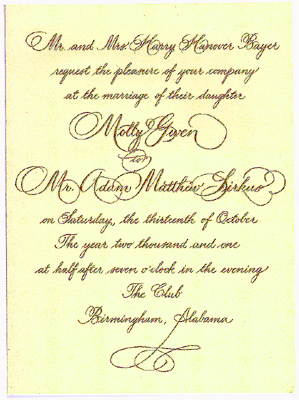 Mr. and Mrs. Harry Hanover Bayer
request the pleasure of your company
at the marriage of their daughter
Molly Gwen
to
Mr. Adam Matthew Sirkus
on Saturday, the thirteenth of October
The year two thousand and one
at half after seven o'clock in the evening
The Club
Birmingham, Alabama